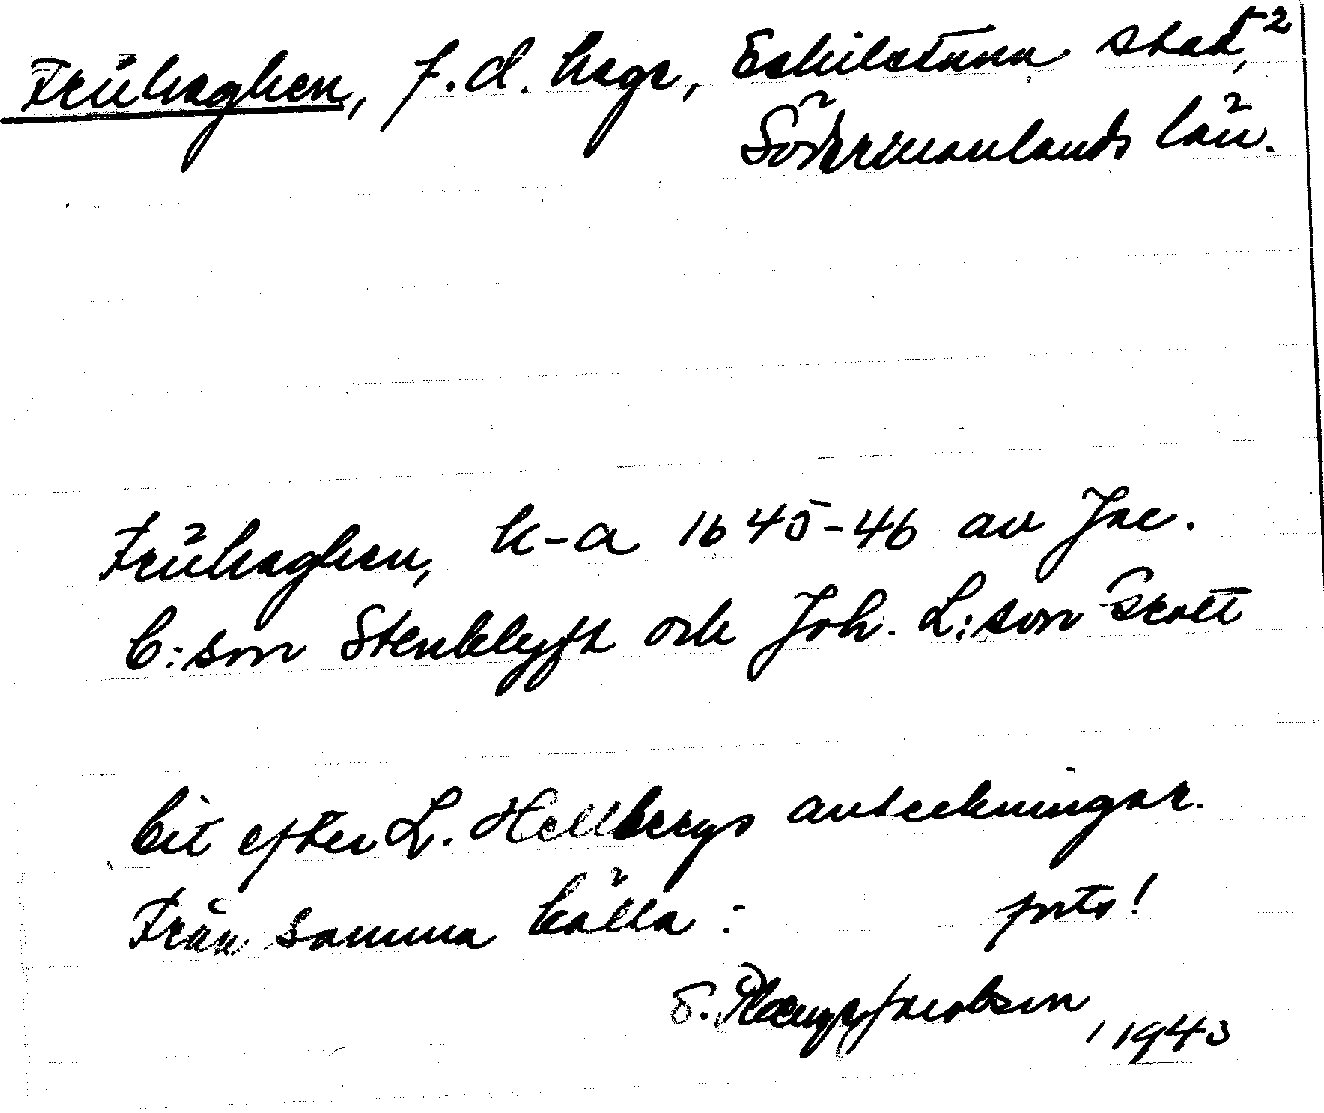 Frühaghen, f.d. hage, Eskilstuna stad,2
Södermanlands län.
Frühaghen, k-a 1645-46 av Jac.
C:son Stenklyft och Joh. L:son Scott
Cit efter L. Hellbergs anteckningar.
Från samma källa: forts!
S. Jacobson, 1943